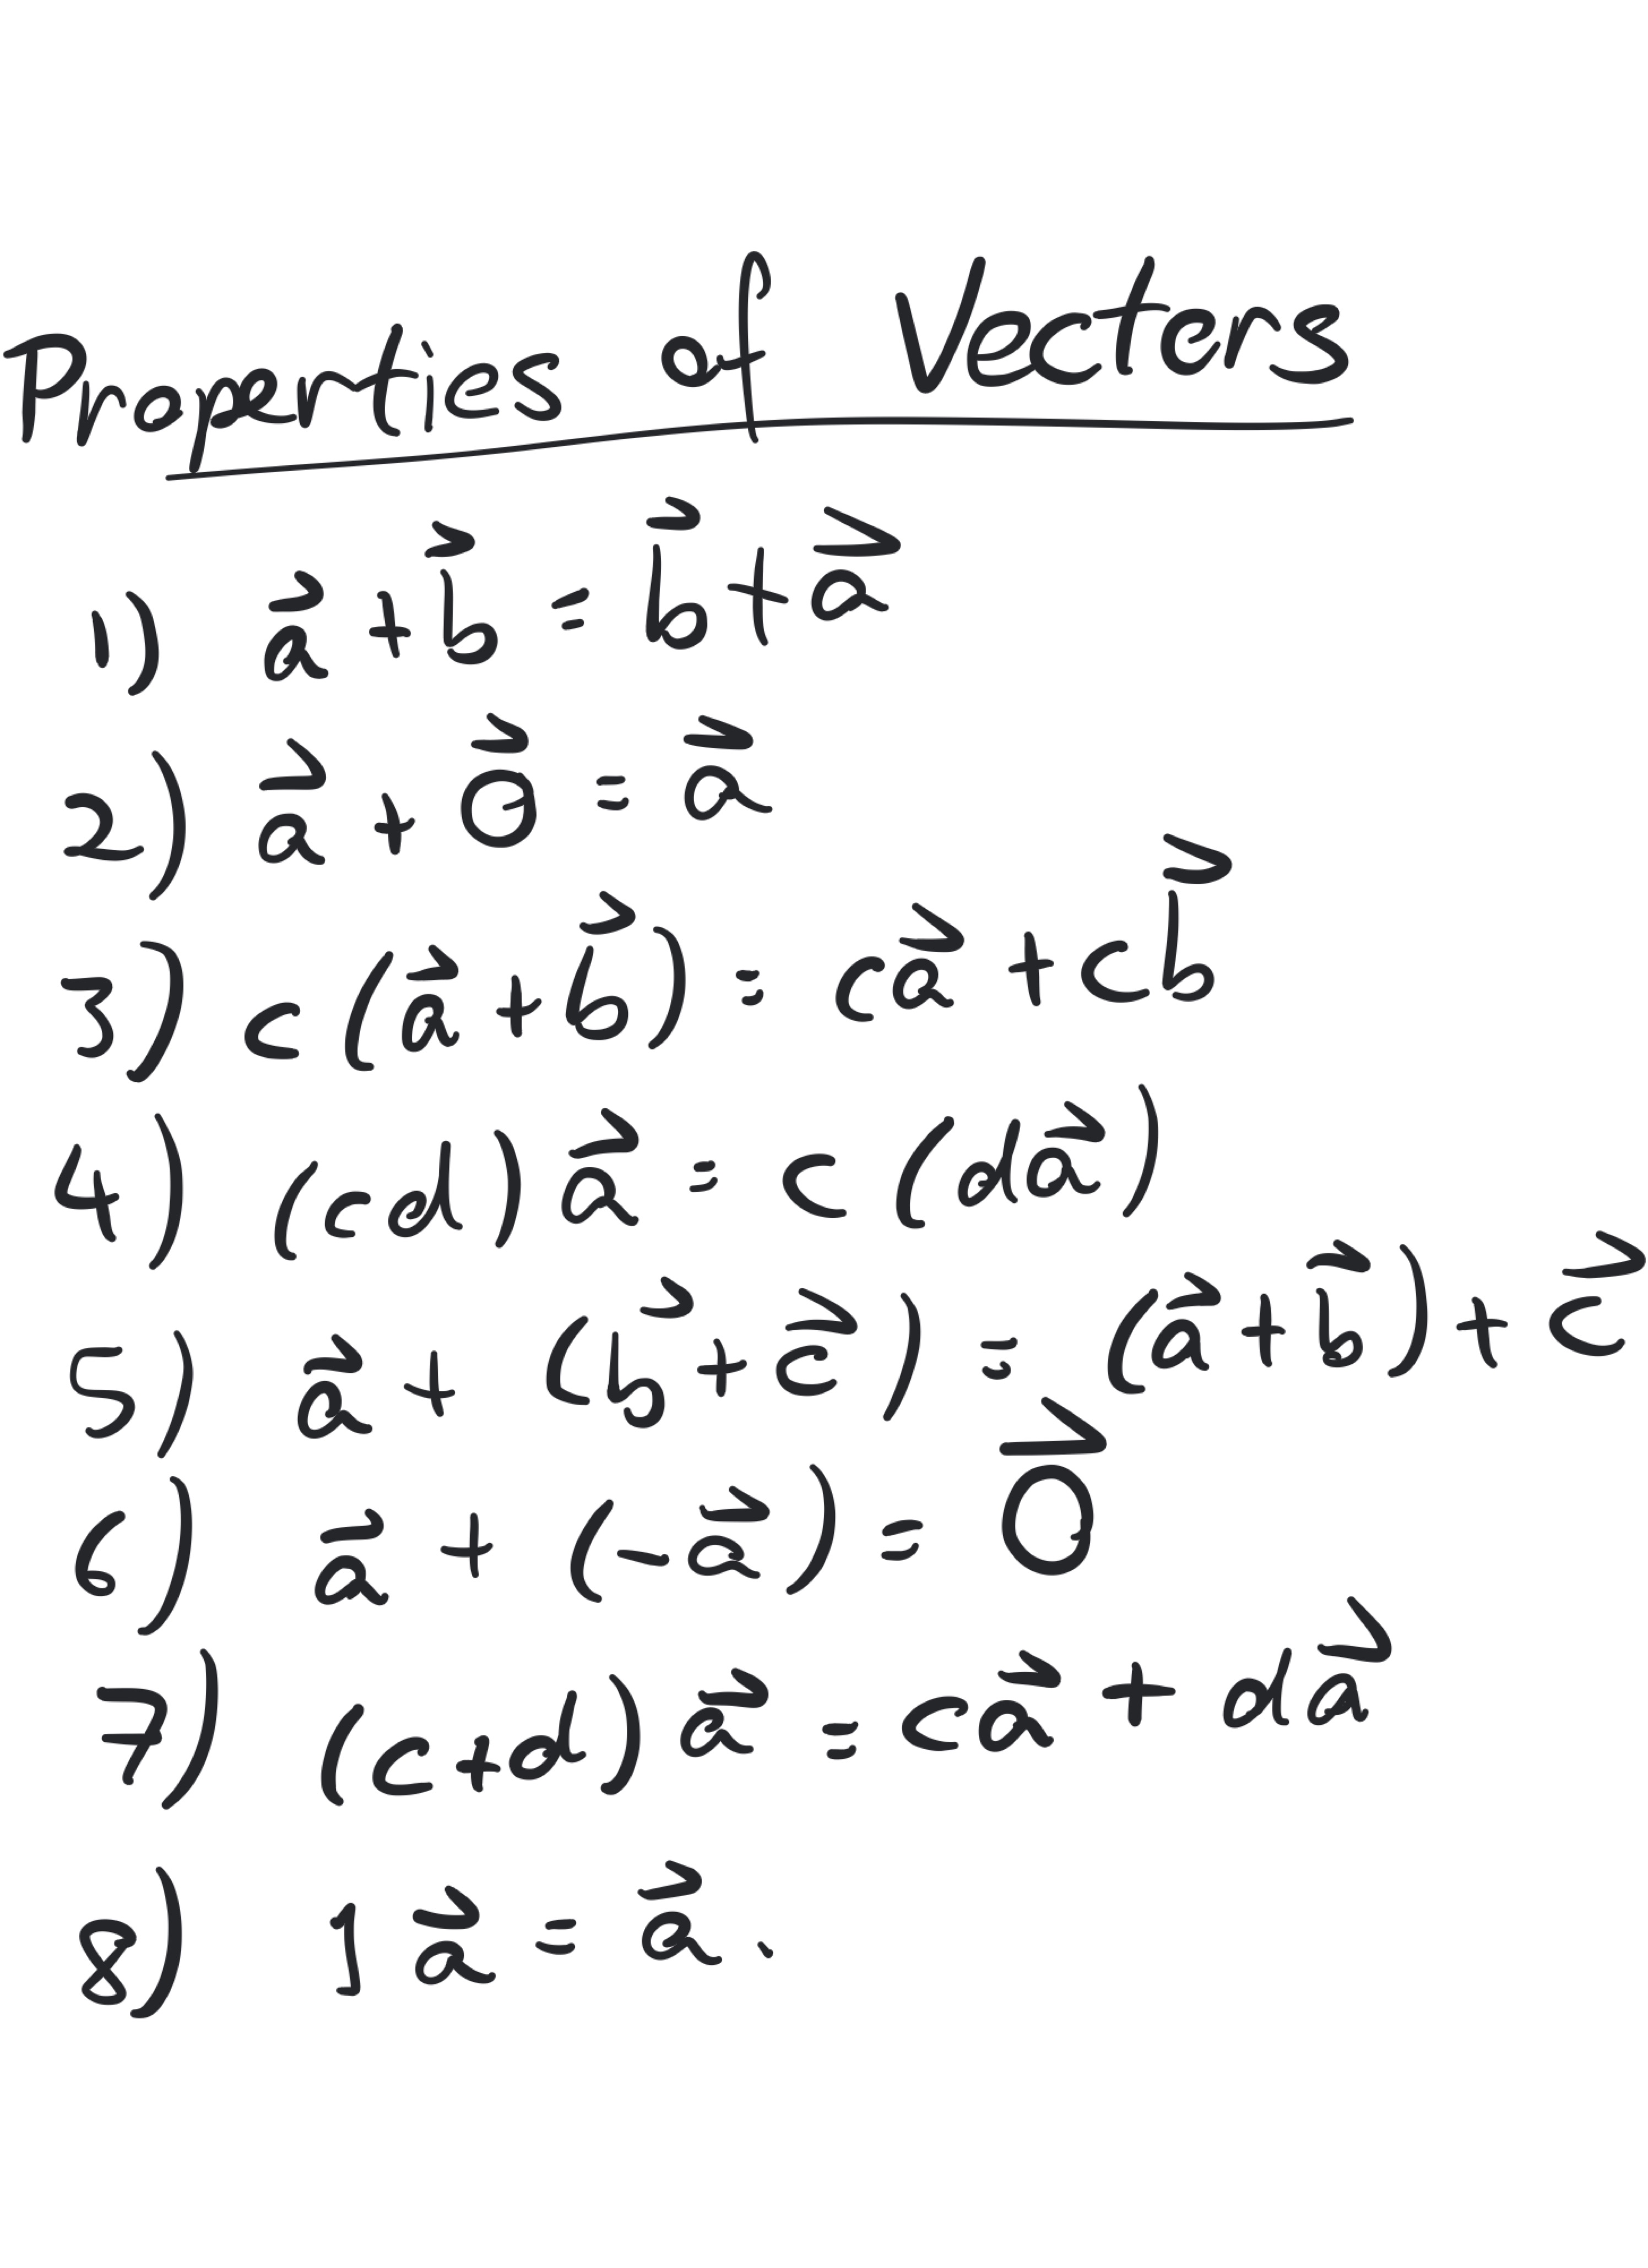 Properties of Vecters
1) a⃗ + b⃗ = b⃗ + a⃗
2) a⃗ + 0⃗ = a⃗
3) c (a⃗ + b⃗) = ca⃗ + cb⃗
4) (cd) a⃗ = c (da⃗)
5) a⃗ + (b⃗ + c⃗) = (a⃗ + b⃗) + c⃗
6) a⃗ + (-a⃗) = 0⃗
7) (c+d) a⃗ = ca⃗ + da⃗
8) 1 a⃗ = a⃗.